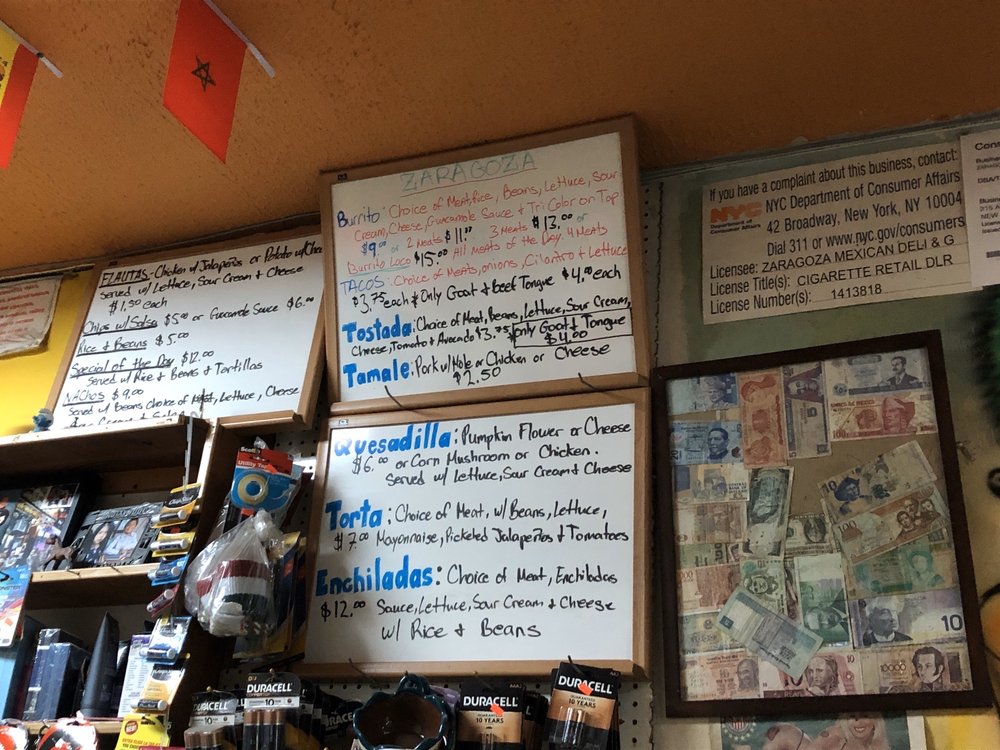 FLAUTAS - Chicken w/ Jalapeños or Potato w/
Served w/ Lettuce, Sour Cream & Cheese
$1.50 each
Chips w/ Salsa $5.00 or Guacamole Sauce $6.00
Rice & Beans $5.00
Special of the Day $12.00
Served w/ Rice & Beans & Tortillas
NACHOS $9.00
Served w/ Beans Choice of Meat, Lettuce, Cheese
ZARAGOZA
Burrito: Choice of Meat, Rice, Beans, Lettuce, Sour
Cream, Cheese, Guacamole Sauce & Tri Color on Top
$9.00 or 2 Meats $11.00 3 Meats $13.00 or
Burrito Loco $15.00 All Meats of the Day. 4 Meats
TACOS: Choice of Meats, onions, Cilantro & Lettuce
$3.75 each * Only Goat & Beef Tongue $4.00 each
Tostada: Choice of Meat, Beans, Lettuce, Sour Cream,
Cheese, Tomato & Avocado $3.75 *only Goat & Tongue
$4.00
Tamale: Pork w/ Mole or Chicken or Cheese
$2.50
Quesadilla: Pumpkin Flower or Cheese
$6.00 or Corn Mushroom or Chicken.
Served w/ Lettuce, Sour Cream & Cheese
Torta: Choice of Meat, w/ Beans, Lettuce,
$7.00 Mayonnaise, Pickeled Jalapeños & Tomatoes
Enchiladas: Choice of Meat, Enchiladas
$12.00 Sauce, Lettuce, Sour Cream & Cheese
w/ Rice & Beans
If you have a complaint about this business, contact:
NYC
Department of
Consumer Affairs
NYC Department of Consumer Affairs
42 Broadway, New York, NY 10004
Dial 311 or www.nyc.gov/consumers
Licensee: ZARAGOZA MEXICAN DELI & G
License Title(s): CIGARETTE RETAIL DLR
License Number(s): 1413818
Scotch
Utility Tape
DURACELL
10 YEARS
DURACELL
10 YEARS
DURACELL
10
DURACELL
10
10
100
10000